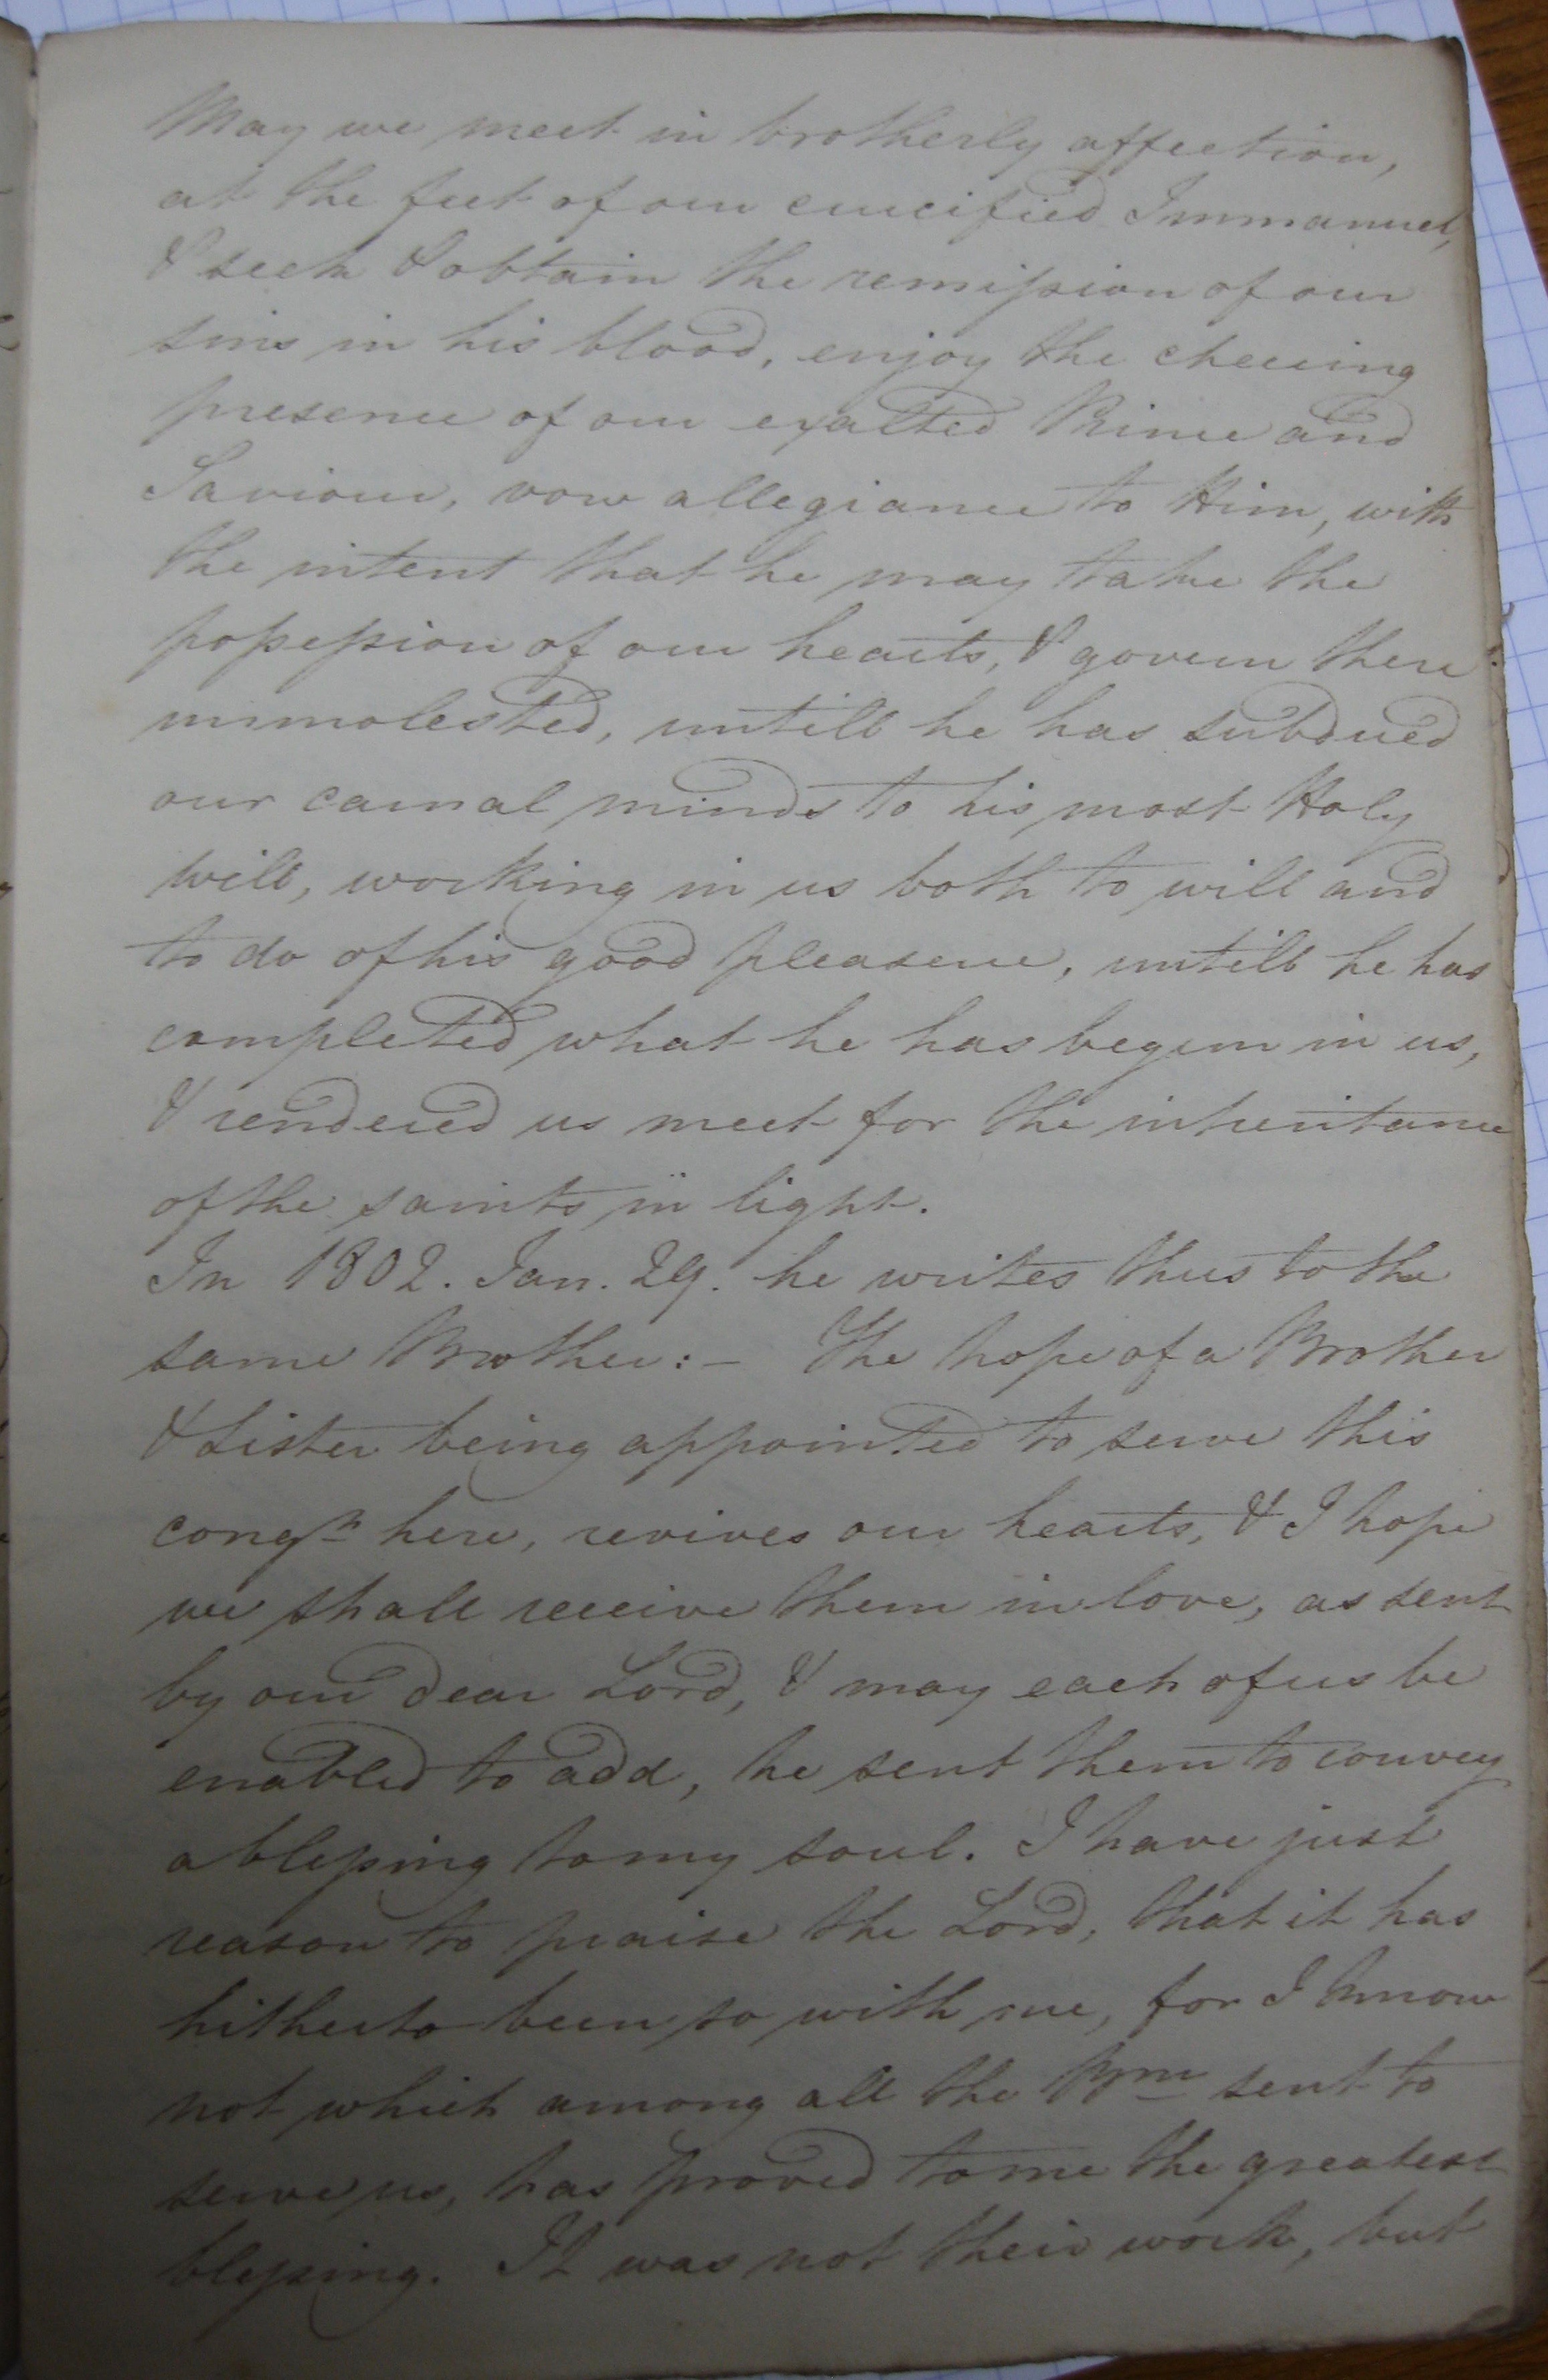 May we meet in brotherly affection,
at the feet of our crucified Immanuel,
& seek & obtain the remission of our
sins in his blood, enjoy the cheering
presence of our exalted Prince and
Saviour, vow allegiance to Him, with
the intent that he may take the
possession of our hearts, & govern there
unmolested, untill he has subdued
our carnal minds to his most Holy
will, working in us both to will and
to do of his good pleasure, untill he has
completed what he has begun in us,
& rendered us meet for the inheritance
of the saints in light.
In 1802. Jan. 29. he writes thus to the
same Brother:- The hope of a Brother
& Sister being appointed to serve this
congn here, revives our hearts, & I hope
we shall receive them in love, as sent
by our dear Lord, & may each of us be
enabled to add, he sent them to convey
a blessing to my soul. I have just
reason to praise the Lord, that it has
hitherto been so with me, for I know
not which among all the Brn sent to
serve us, has proved to me the greatest
blessing. It was not their work, but